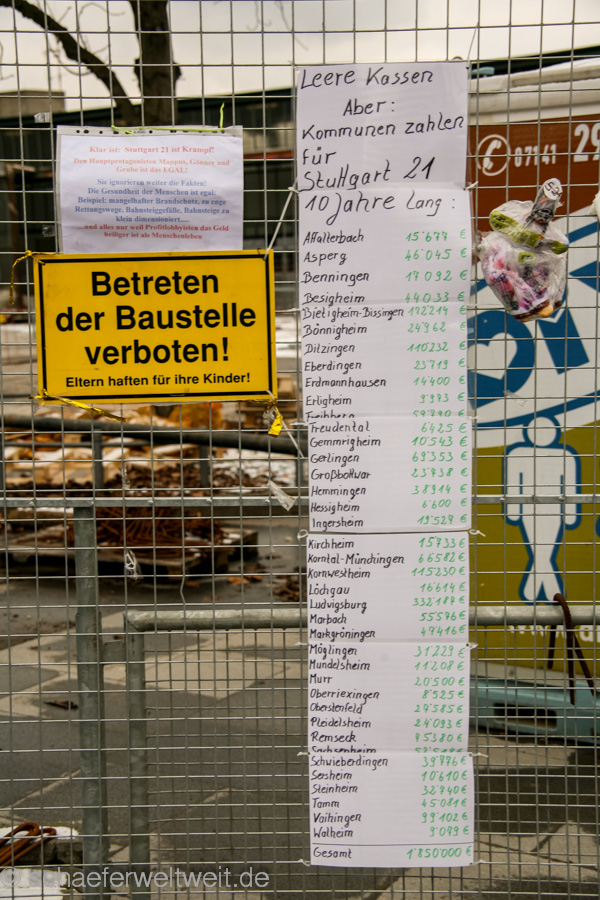 Klar ist: Stuttgart 21 ist Krampf!
Den Hauptprotagonisten Mappus, Gönner und
Grube ist das EGAL!
Sie ignorieren weiter die Fakten!
Die Gesundheit der Menschen ist egal:
Beispiel: mangelhafter Brandschutz, zu enge
Rettungswege, Bahnsteiggefälle, Bahnsteige zu
klein dimensioniert....
...und alles nur weil Profitlobbyisten das Geld
heiliger ist als Menschenleben
Betreten
der Baustelle
verboten!
Eltern haften für ihre Kinder!
Leere Kassen
Aber:
Kommunen zahlen
für
Stuttgart 21
10 Jahre Lang:
Affalterbach 15'677 €
Asperg 46'045 €
Benningen 17'092 €
Besigheim 44'033 €
Bietigheim-Bissingen 172'214 €
Bönnigheim 24'962 €
Ditzingen 110'232 €
Eberdingen 23'719 €
Erdmannhausen 14'400 €
Erligheim 9'943 €
Freiberg
Freudental 6'425 €
Gemmrigheim 10'543 €
Gerlingen 69'353 €
Großbottwar 23'938 €
Hemmingen 38'914 €
Hessigheim 6'600 €
Ingersheim 19'529 €
Kirchheim 15'733 €
Korntal-Münchingen 66'582 €
Kornwestheim 115'230 €
Löchgau 16'614 €
Ludwigsburg 332'187 €
Marbach 55'576 €
Markgröningen 47'416 €
Möglingen 31'229 €
Mundelsheim 11'208 €
Murr 20'500 €
Oberriexingen 8'525 €
Oberstenfeld 29'585 €
Pleidelsheim 24'093 €
Remseck 75380 €
Sachsenheim
Schwieberdingen 39'776 €
Sersheim 10'610 €
Steinheim 32'740 €
Tamm 45'081 €
Vaihingen 99'102 €
Walheim 9'099 €
Gesamt 1'850'000 €
07141 29
© schaeferweltweit.de